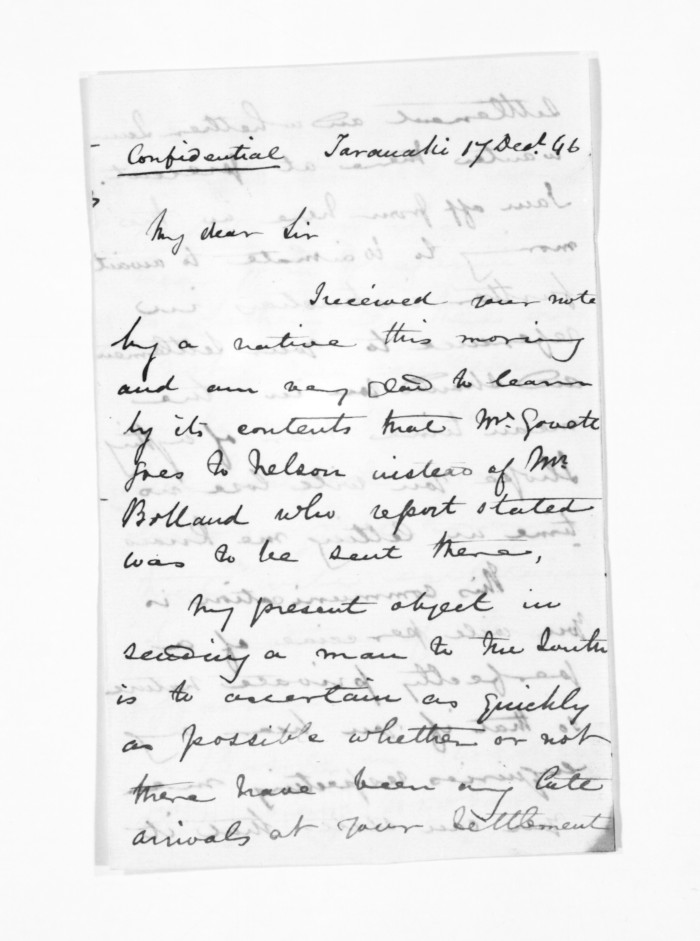 Confidential Taranaki 17 Decr. 46.
My dear Sir
I received your note
by a native this morning
and am very glad to learn
by its contents that Mr. Govett
goes to Nelson instead of Mr.
Bolland who report stated
was to be sent there,
My present object in
sending a man to the South
is to ascertain as quickly
as possible whether or not
there have been any late
arrivals at your Settlement